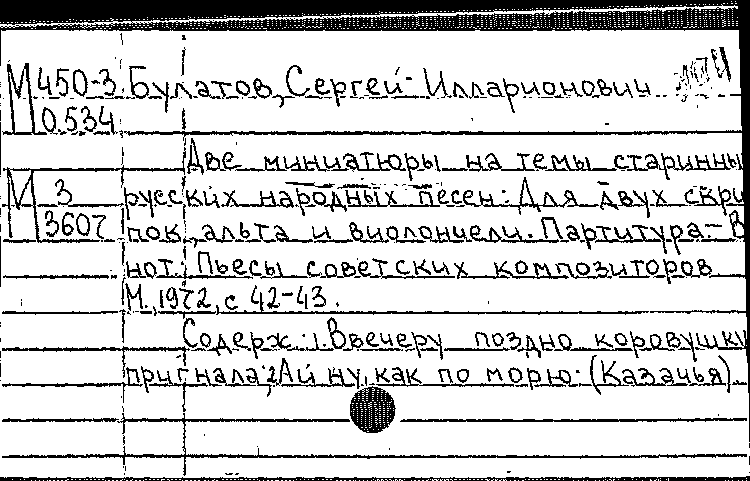 М 450-3 Булатов, Сергей Илларионович
0534
Две миниатюры на темы старинны
М 3 русских народных песен: Для двух скри
3607 пок, альта и виолончели. Партитура.- В
нот.: Пьесы советских композиторов
М., 1972, с. 42-43.
Содерж.: 1. Ввечеру поздно коровушки
пригнала; 2. Ай ну, как по морю. (Казачья).